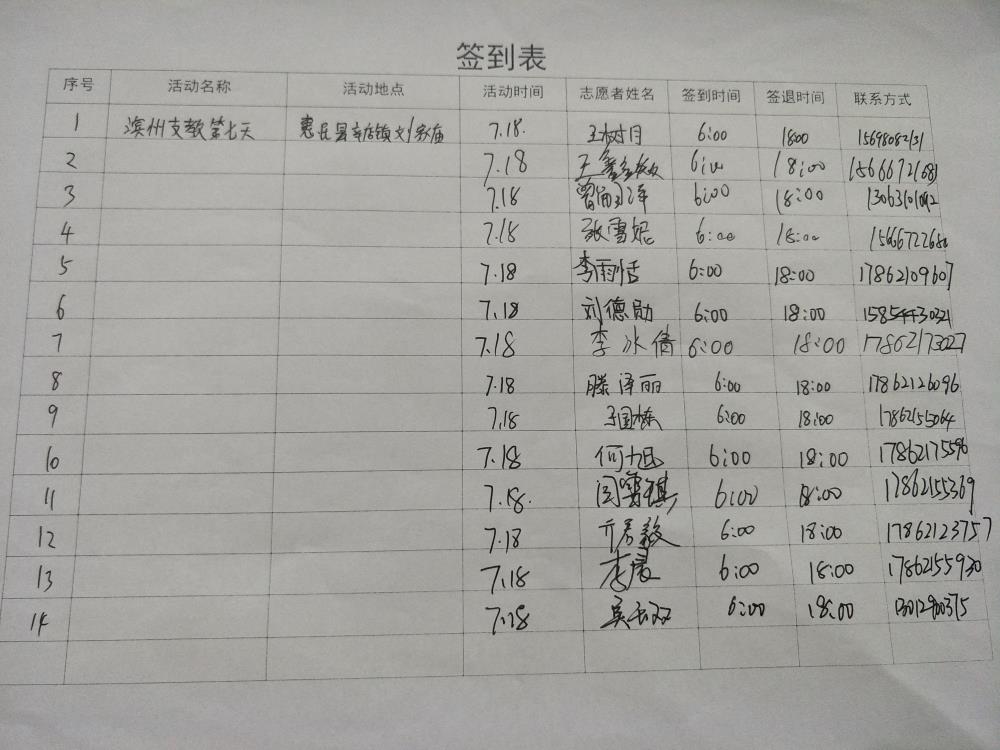 签到表
序号 活动名称 活动地点 活动时间 志愿者姓名 签到时间 签退时间 联系方式
1 滨州支教第七天 惠民县辛店镇刘家庙 7.18. 王树月 6:00 18:00
2 7.18 王鑫 6:00 18:00 15666721681
3 7.18 曾 泽 6:00 18:00
4 7.18 张雪妮 6:00 18:00
5 7.18 李雨恬 6:00 18:00 17862109607
6 7.18 刘德勋 6:00 18:00 15854430321
7 7.18 李冰倩 6:00 18:00 17862173027
8 7.18 滕泽丽 6:00 18:00 17862126096
9 7.18 王国栋 6:00 18:00 17862155064
10 7.18 何旭 6:00 18:00 17862175596
11 7.18. 闫雪琪 6:00 18:00 17862155369
12 7.18 亓 毅 6:00 18:00 17862123757
13 7.18 李晨 6:00 18:00 17862155930
14 7.18 吴 双 6:00 18:00 13012900375